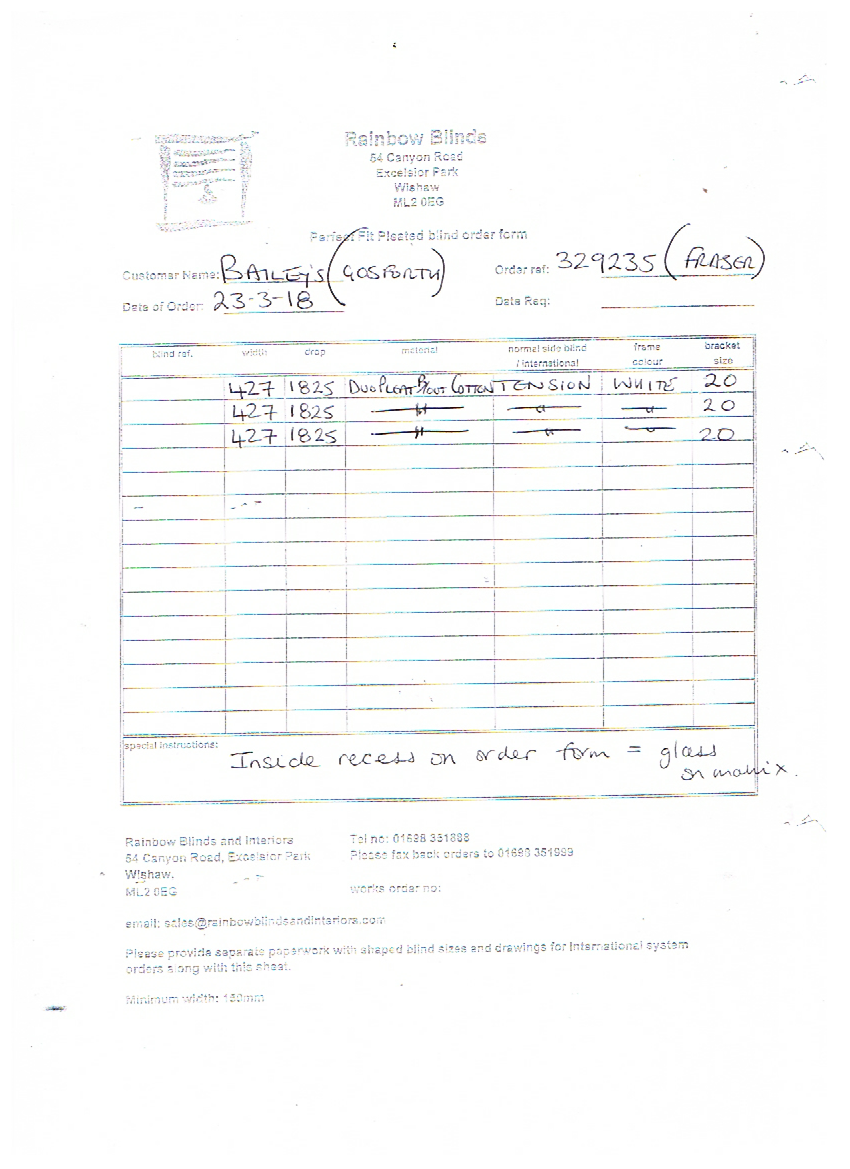 Rainbow Blinds
54 Canyon Road
Excelsior Park
Wishaw
ML2 0EG
Perfect Fit Pleated blind order form
Customer Name: BAILEY'S (GOSFORTH) Order ref: 329235 (FRASER)
Date of Order: 23-3-18 Date Req:
blind ref. width drop material normal side blind / international frame colour bracket size
427 1825 DUOPLEAT B/OUT COTTON TENSION WHITE 20
427 1825 — " — — " — — " — 20
427 1825 — " — — " — — " — 20
special instructions: Inside recess on order form = glass
on matrix.
Rainbow Blinds and Interiors Tel no: 01698 351888
54 Canyon Road, Excelsior Park Please fax back orders to 01698 351999
Wishaw.
ML2 0EG works order no:
email: sales@rainbowblindsandinteriors.com
Please provide separate paperwork with shaped blind sizes and drawings for International system
orders along with this sheet.
Minimum width: 150mm